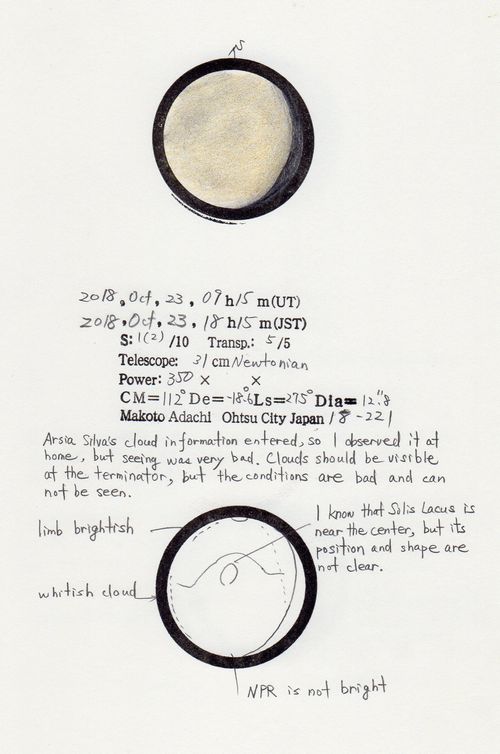 S
2018, Oct, 23, 09 h 15 m (UT)
2018, Oct, 23, 18 h 15 m (JST)
S: 1(2) /10 Transp.: 5 /5
Telescope: 31 cm Newtonian
Power: 350 × ×
CM=112° De=-18.6° Ls=275° Dia=12.″8
Makoto Adachi Ohtsu City Japan 18-221
Arsia Silva's cloud information entered, so I observed it at
home, but seeing was very bad. Clouds should be visible
at the terminator, but the conditions are bad and can
not be seen.
limb brightish
I know that Solis Lacus is
near the center, but its
position and shape are
not clear.
whitish cloud
NPR is not bright